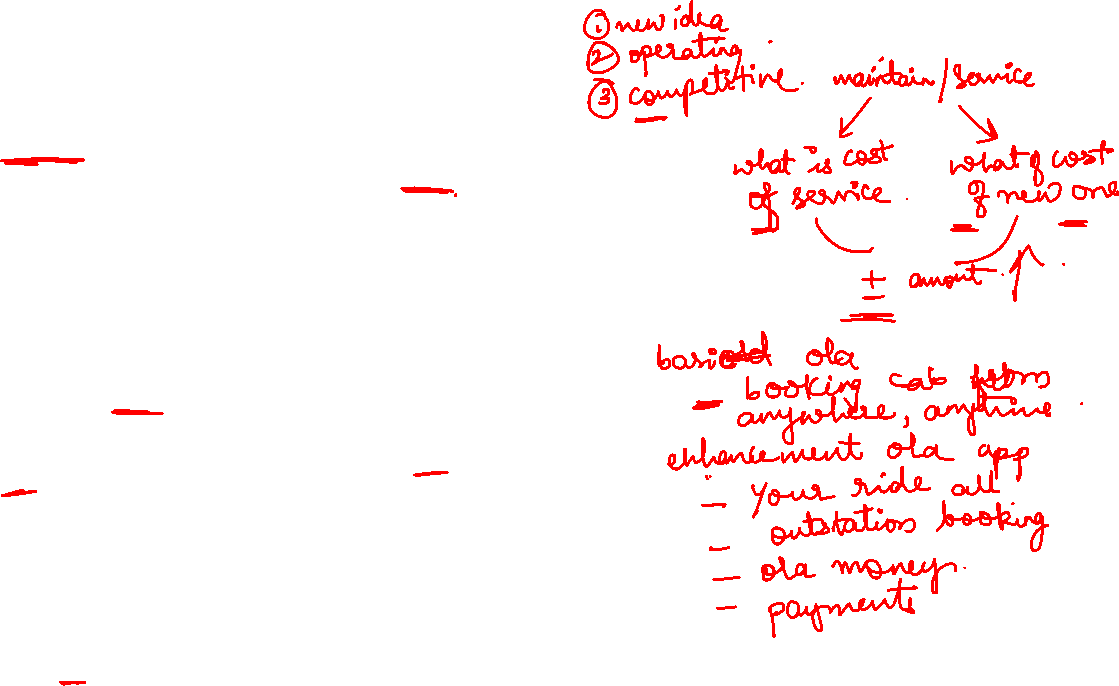 ① new idea
② operating
③ competitive. maintain/service
what is cost of service.
what of cost of new one
+ amout ↑
basic ola
booking cab from
anywhere, anytime.
enhancement ola app
- your ride all
- outstation booking
- ola money.
- payments